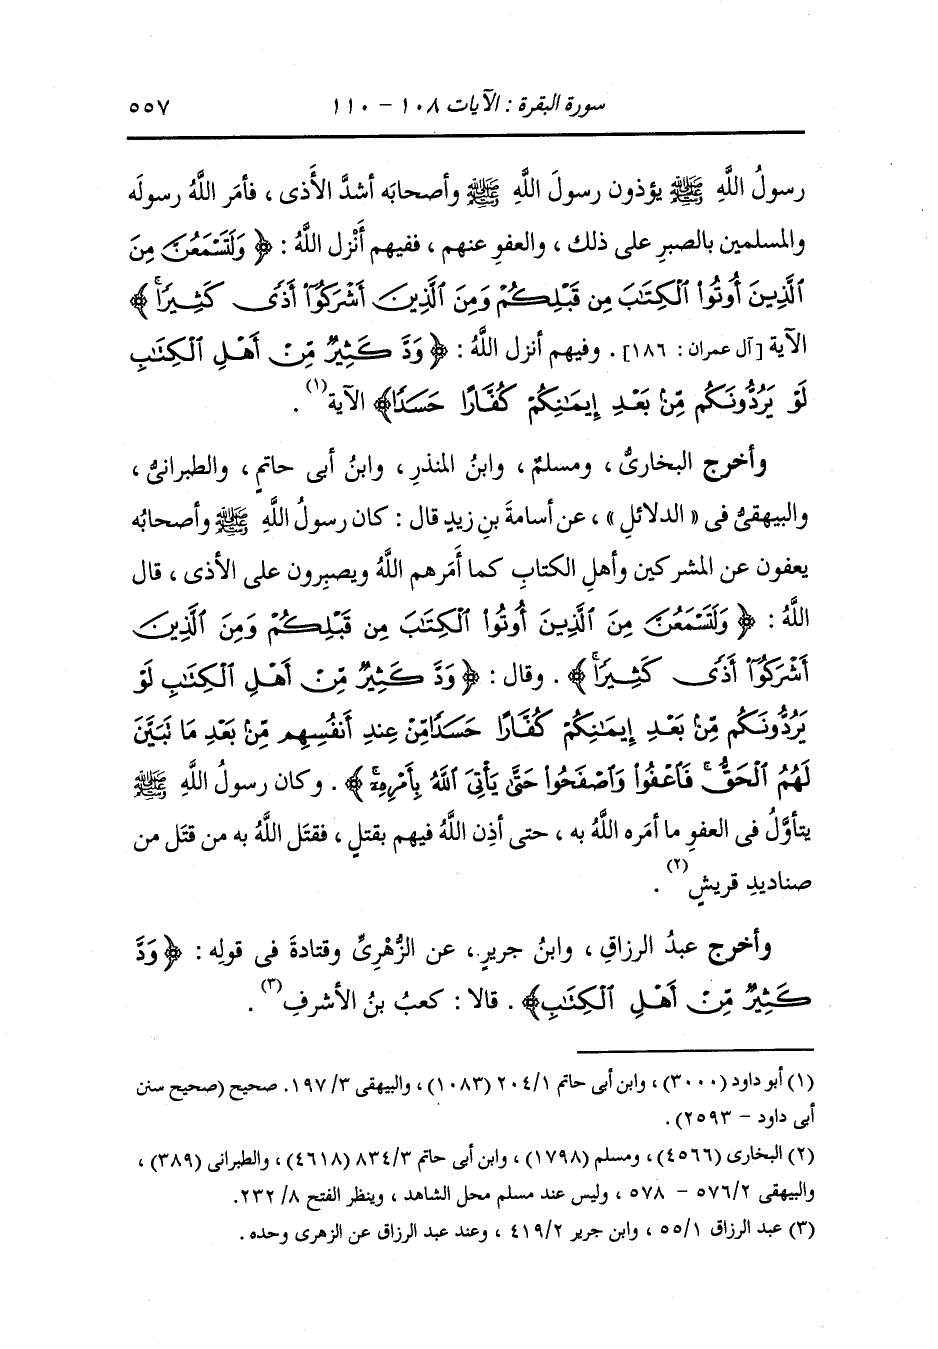 سورة البقرة : الآيات ١٠٨ - ١١٠ ٥٥٧
رسولُ اللَّهِ ﷺ يؤذون رسولَ اللَّهِ ﷺ وأصحابَه أشدَّ الأَذى ، فأمَر اللَّهُ رسولَه
والمسلمين بالصبرِ على ذلك ، والعفوِ عنهم ، ففيهم أَنْزل اللَّهُ : ﴿ وَلَتَسْمَعُنَّ مِنَ
ٱلَّذِينَ أُوتُوا۟ ٱلْكِتَـٰبَ مِن قَبْلِكُمْ وَمِنَ ٱلَّذِينَ أَشْرَكُوٓا۟ أَذًى كَثِيرًا ۚ ﴾
الآية [آل عمران : ١٨٦] . وفيهم أنزل اللَّهُ : ﴿ وَدَّ كَثِيرٌ مِّنْ أَهْلِ ٱلْكِتَـٰبِ
لَوْ يَرُدُّونَكُم مِّنۢ بَعْدِ إِيمَـٰنِكُمْ كُفَّارًا حَسَدًا﴾ الآية(١) .
وأخرج البخارىُّ ، ومسلمٌ ، وابنُ المنذرِ ، وابنُ أبى حاتمٍ ، والطبرانىُّ ،
والبيهقىُّ فى « الدلائلِ » ، عن أسامةَ بنِ زيدٍ قال : كان رسولُ اللَّهِ ﷺ وأصحابُه
يعفون عن المشركين وأهلِ الكتابِ كما أمَرهم اللَّهُ ويصبِرون على الأذى ، قال
اللَّهُ : ﴿ وَلَتَسْمَعُنَّ مِنَ ٱلَّذِينَ أُوتُوا۟ ٱلْكِتَـٰبَ مِن قَبْلِكُمْ وَمِنَ ٱلَّذِينَ
أَشْرَكُوٓا۟ أَذًى كَثِيرًا ۚ ﴾ . وقال : ﴿ وَدَّ كَثِيرٌ مِّنْ أَهْلِ ٱلْكِتَـٰبِ لَوْ
يَرُدُّونَكُم مِّنۢ بَعْدِ إِيمَـٰنِكُمْ كُفَّارًا حَسَدًا مِّنْ عِندِ أَنفُسِهِم مِّنۢ بَعْدِ مَا تَبَيَّنَ
لَهُمُ ٱلْحَقُّ ۖ فَٱعْفُوا۟ وَٱصْفَحُوا۟ حَتَّىٰ يَأْتِىَ ٱللَّهُ بِأَمْرِهِۦٓ ۗ ﴾ . وكان رسولُ اللَّهِ ﷺ
يتأوَّلُ فى العفوِ ما أمَره اللَّهُ به ، حتى أذِن اللَّهُ فيهم بقتلٍ ، فقتَل اللَّهُ به من قتَل من
صناديدِ قريشٍ(٢) .
وأخرج عبدُ الرزاقِ ، وابنُ جريرٍ ، عن الزُّهْرِىِّ وقتادةَ فى قولِه : ﴿ وَدَّ
كَثِيرٌ مِّنْ أَهْلِ ٱلْكِتَـٰبِ﴾ . قالا : كعبُ بنُ الأشرفِ(٣) .
(١) أبو داود (٣٠٠٠) ، وابن أبى حاتم ٢٠٤/١ (١٠٨٣) ، والبيهقى ١٩٧/٣. صحيح (صحيح سنن
أبى داود - ٢٥٩٣) .
(٢) البخارى (٤٥٦٦) ، ومسلم (١٧٩٨) ، وابن أبى حاتم ٨٣٤/٣ (٤٦١٨) ، والطبرانى (٣٨٩) ،
والبيهقى ٥٧٦/٢ - ٥٧٨ ، وليس عند مسلم محل الشاهد ، وينظر الفتح ٢٣٢/٨.
(٣) عبد الرزاق ٥٥/١ ، وابن جرير ٤١٩/٢ ، وعند عبد الرزاق عن الزهرى وحده .